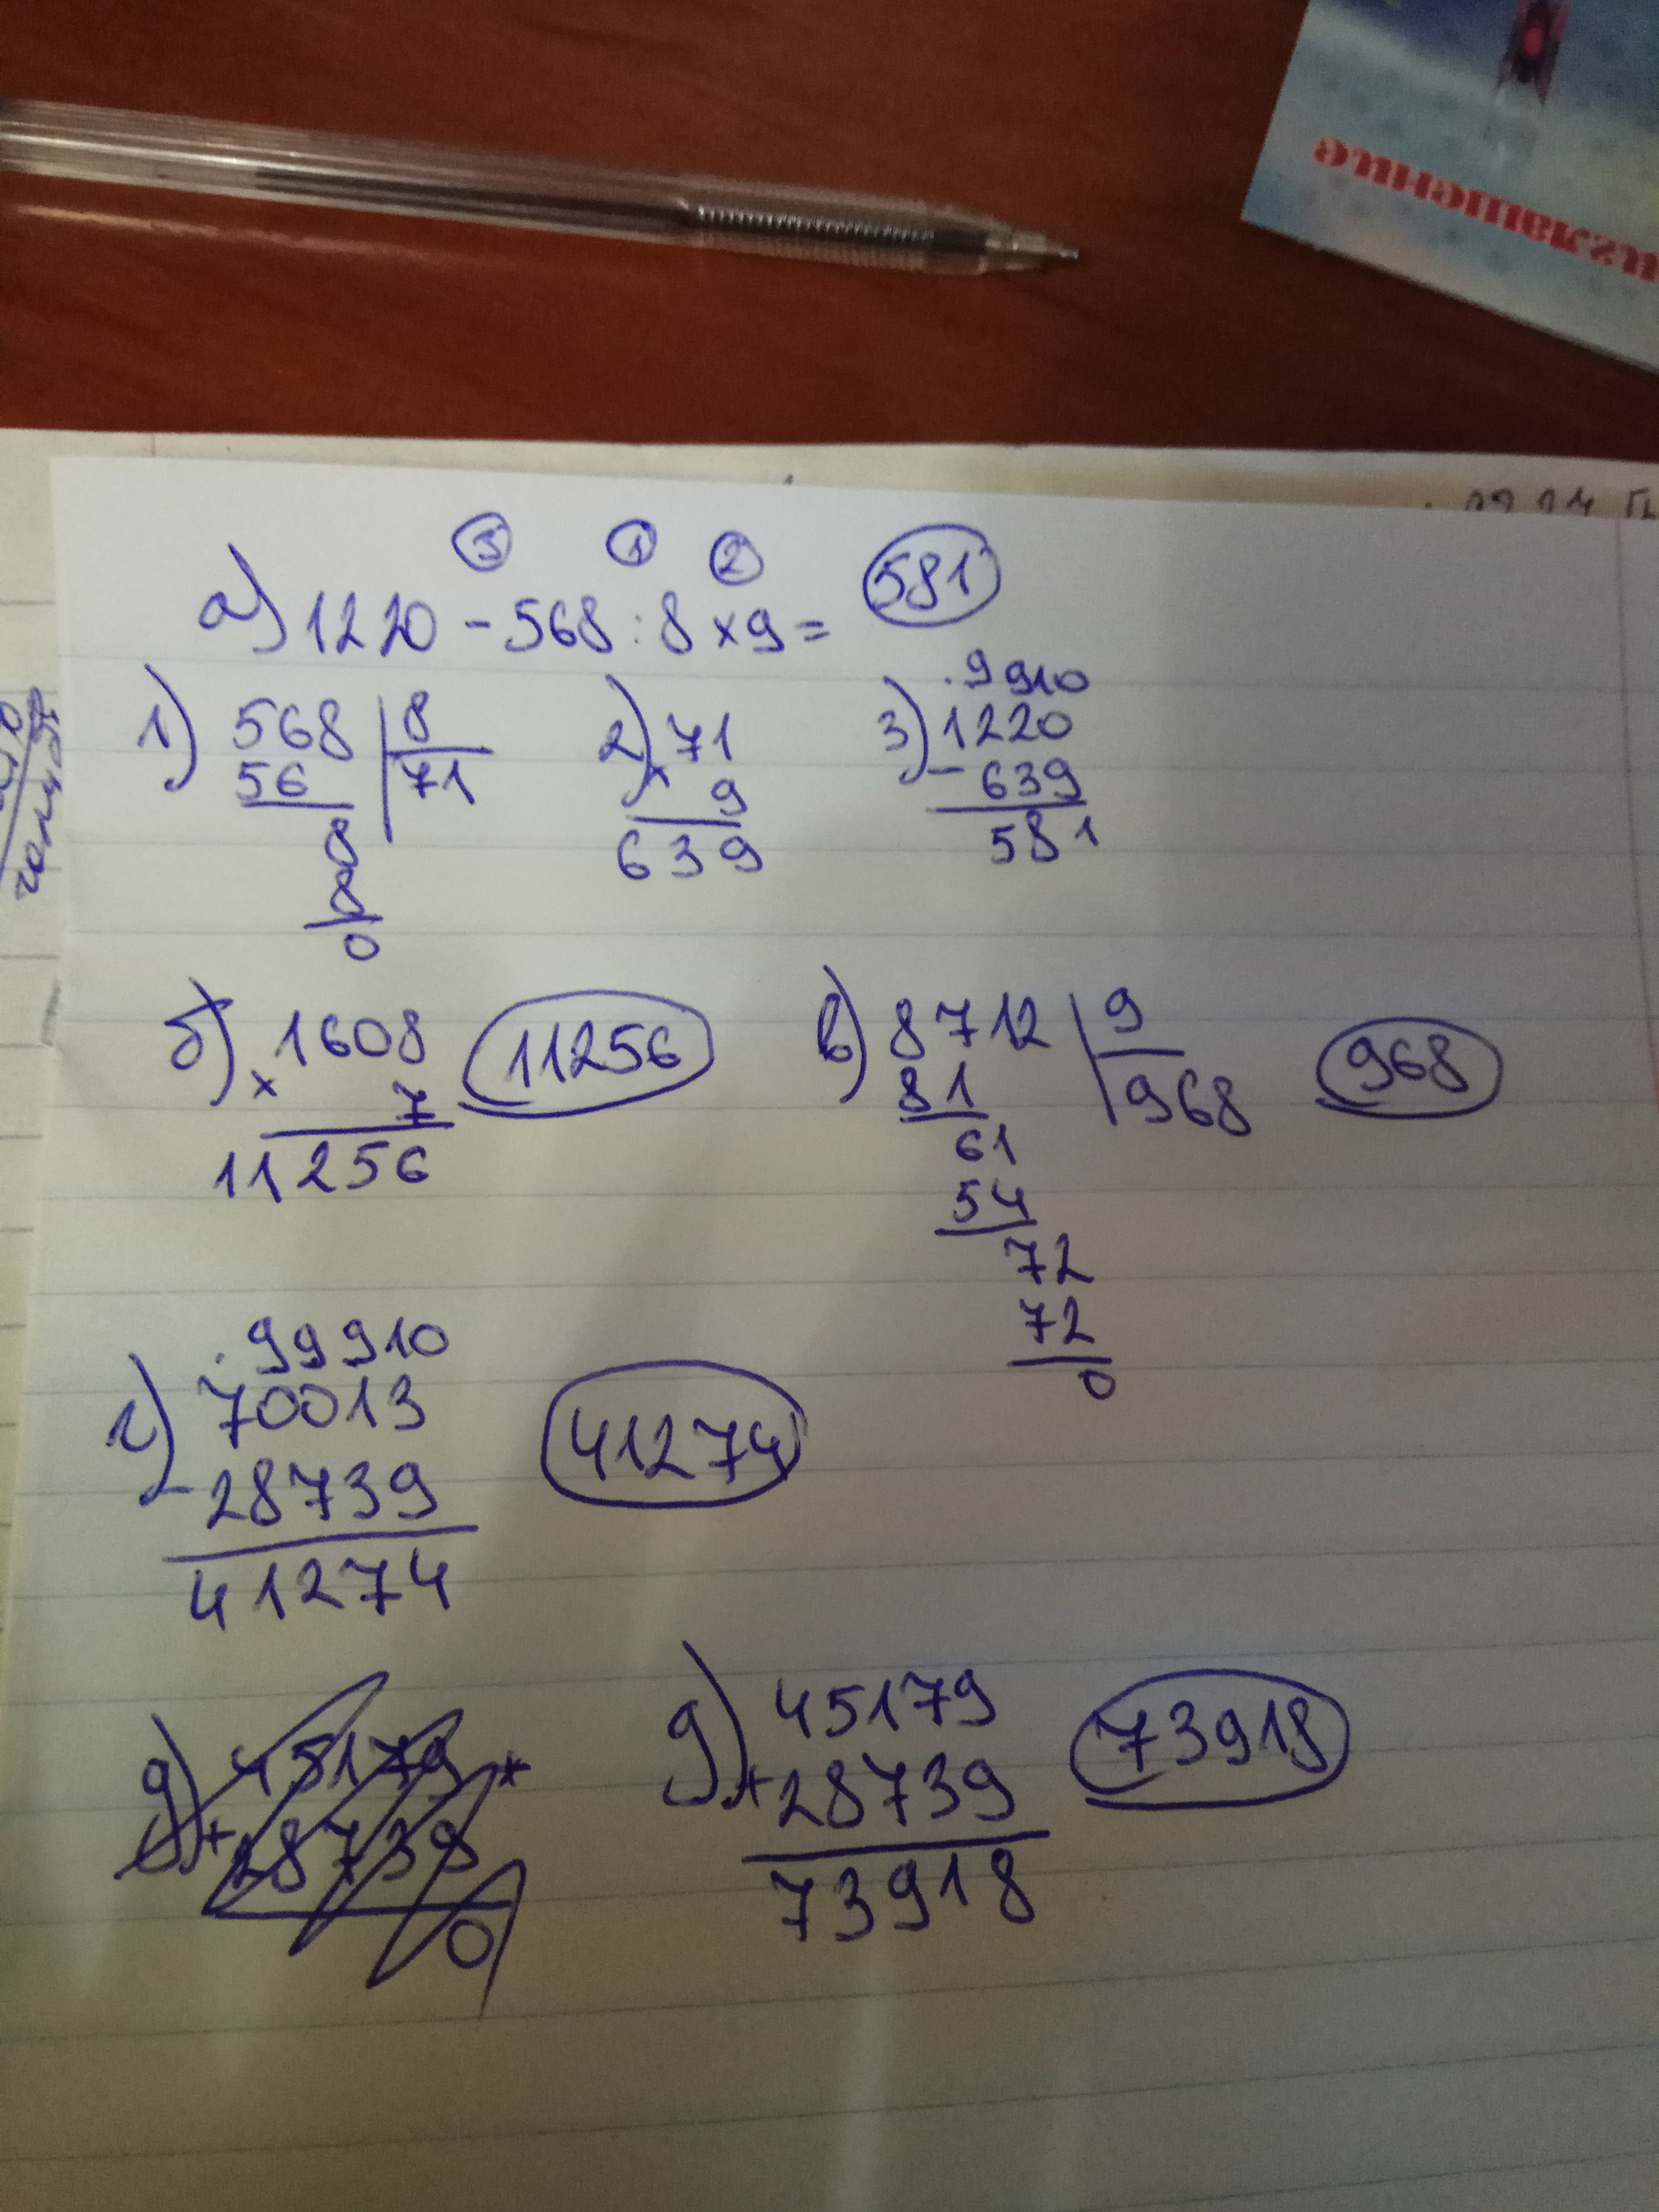 ③ ① ②
а) 1220 - 568 : 8 × 9 = 581
1) 568 | 8
56 71
8
8
0
2) 71
× 9
639
3) . 9 9 10
1220
- 639
581
б) 1608
× 7
11256
11256
в) 8712 | 9
81 968
61
54
72
72
0
968
г) . 9 9 9 10
70013
- 28739
41274
41274
д) 45179
+ 28739
73918
73918